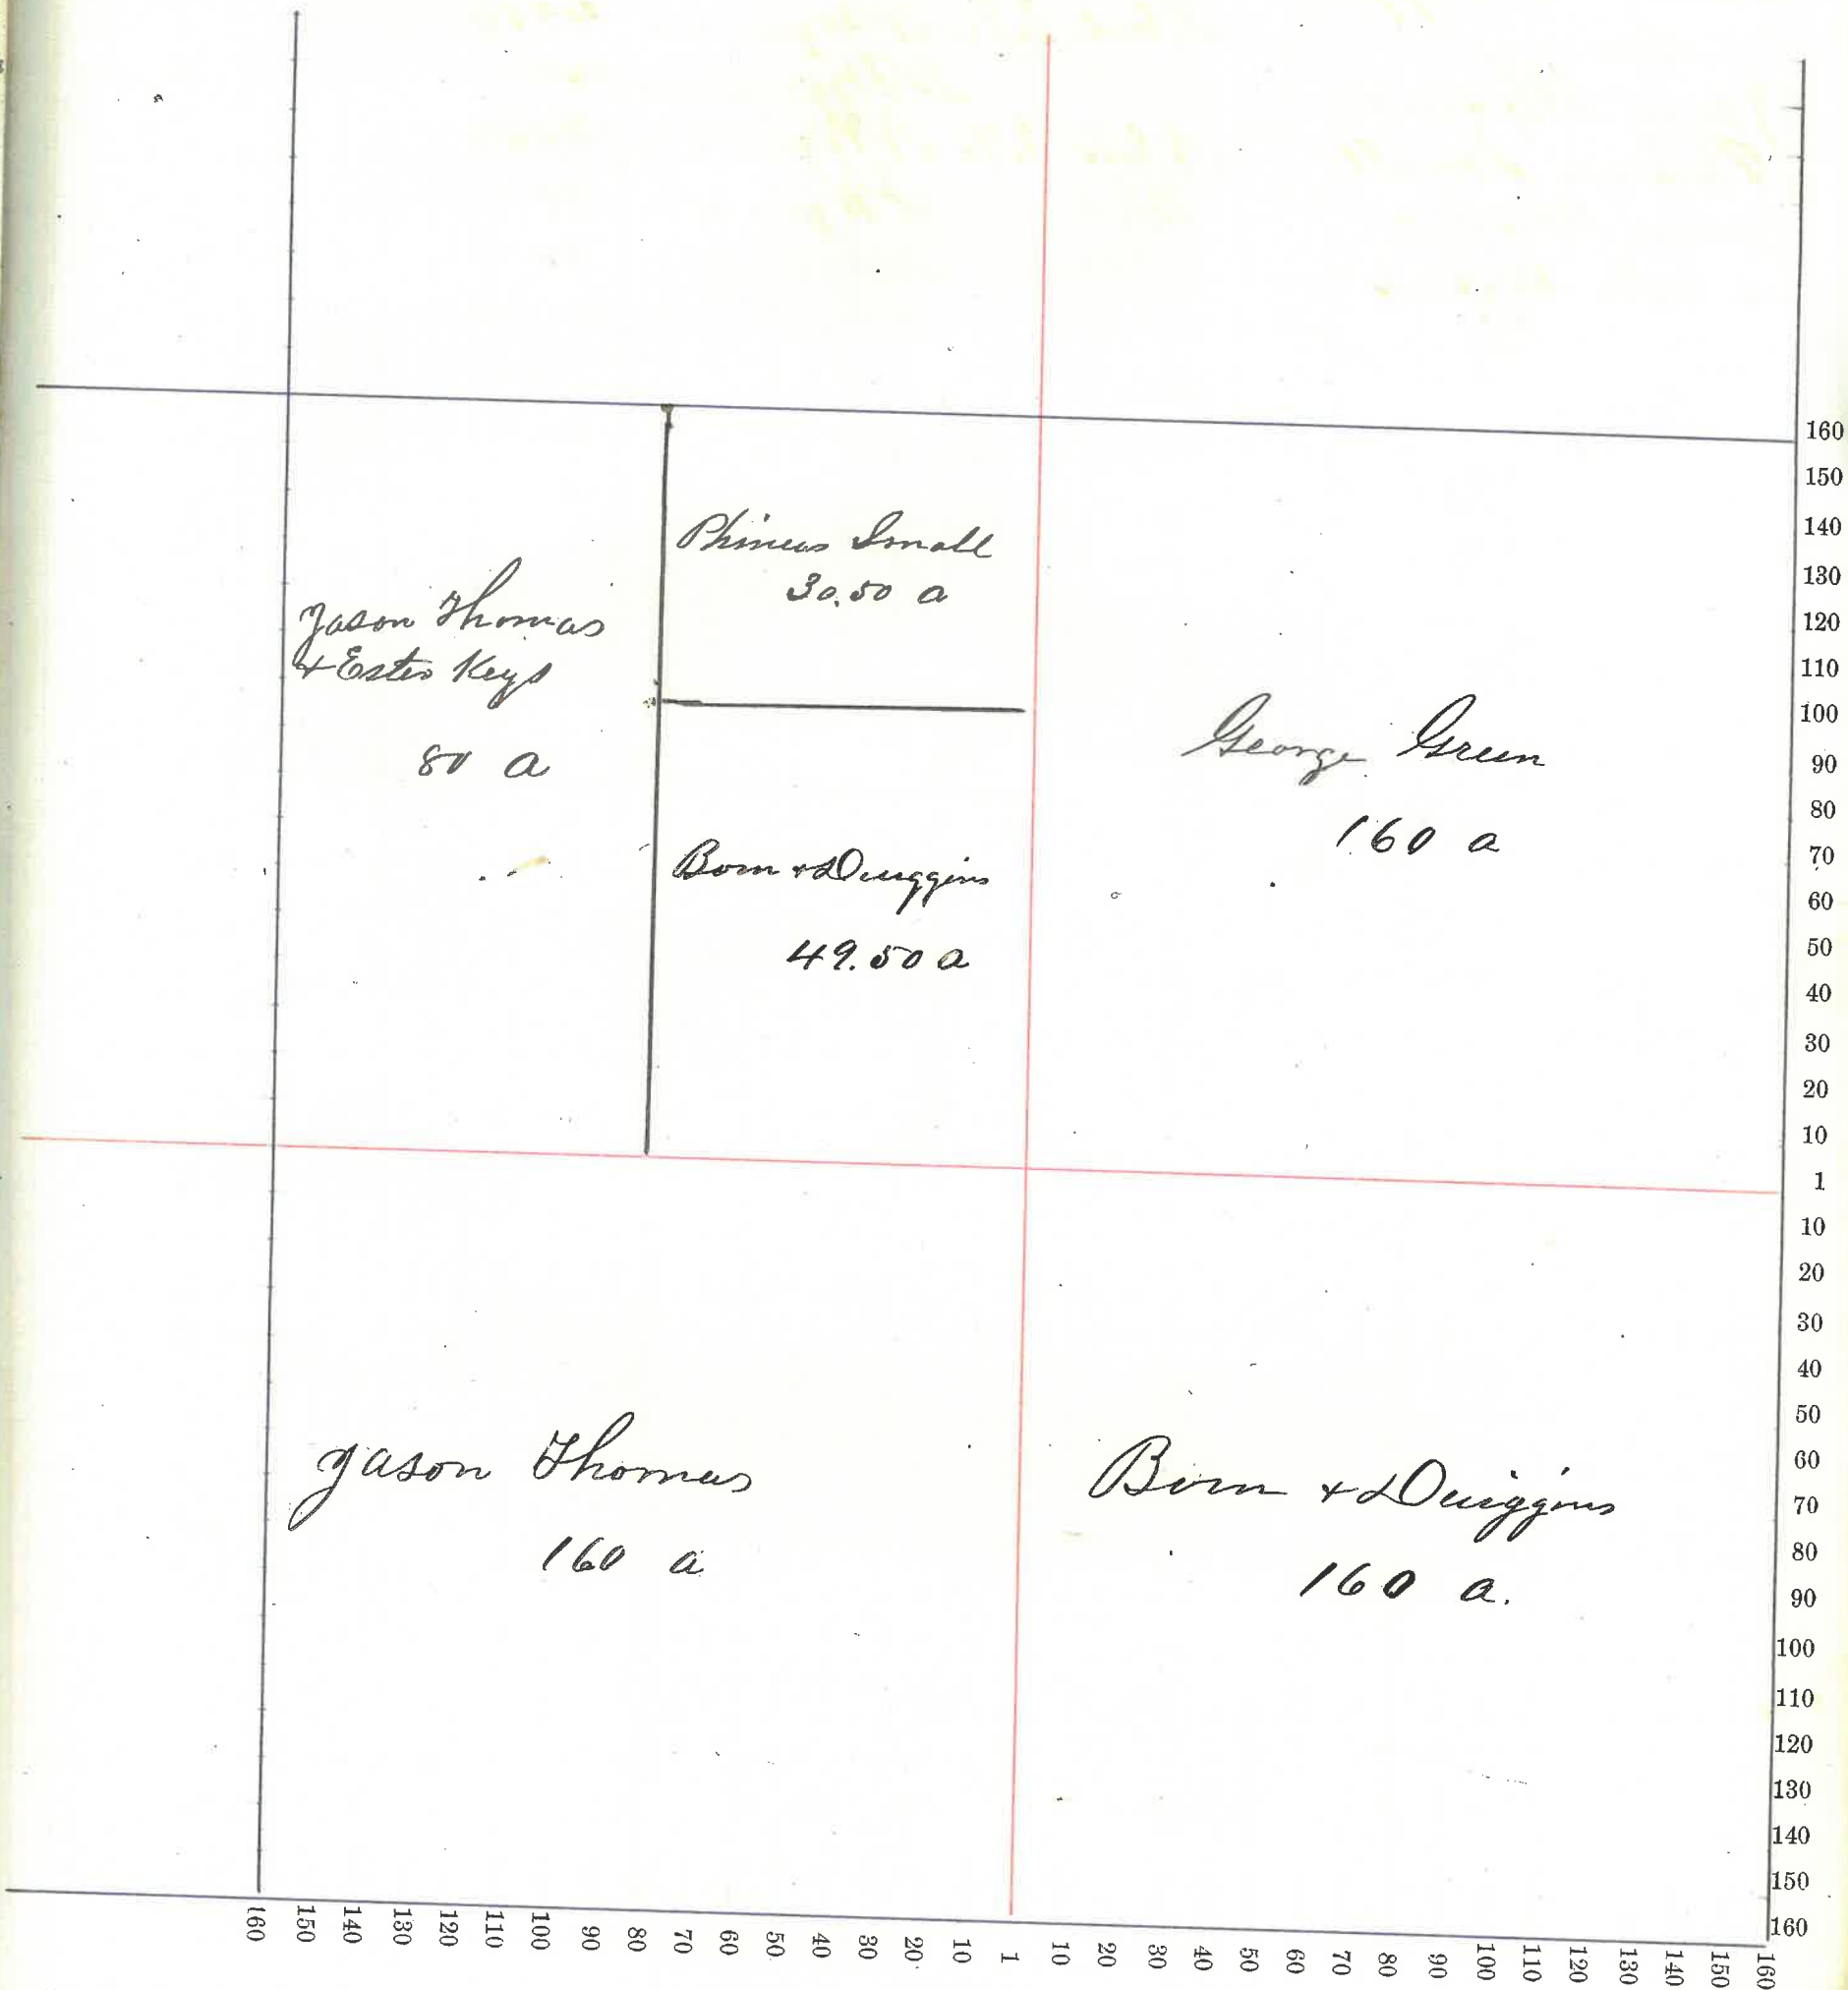 Phineas Small
30.50 a
Jason Thomas
& Ester Keys
80 a
George Green
160 a
Born & Duiggins
49.50 a
Jason Thomas
160 a
Born & Duiggins
160 a.
160
150
140
130
120
110
100
90
80
70
60
50
40
30
20
10
1
10
20
30
40
50
60
70
80
90
100
110
120
130
140
150
160
160 150 140 130 120 110 100 90 80 70 60 50 40 30 20 10 1 10 20 30 40 50 60 70 80 90 100 110 120 130 140 150 160